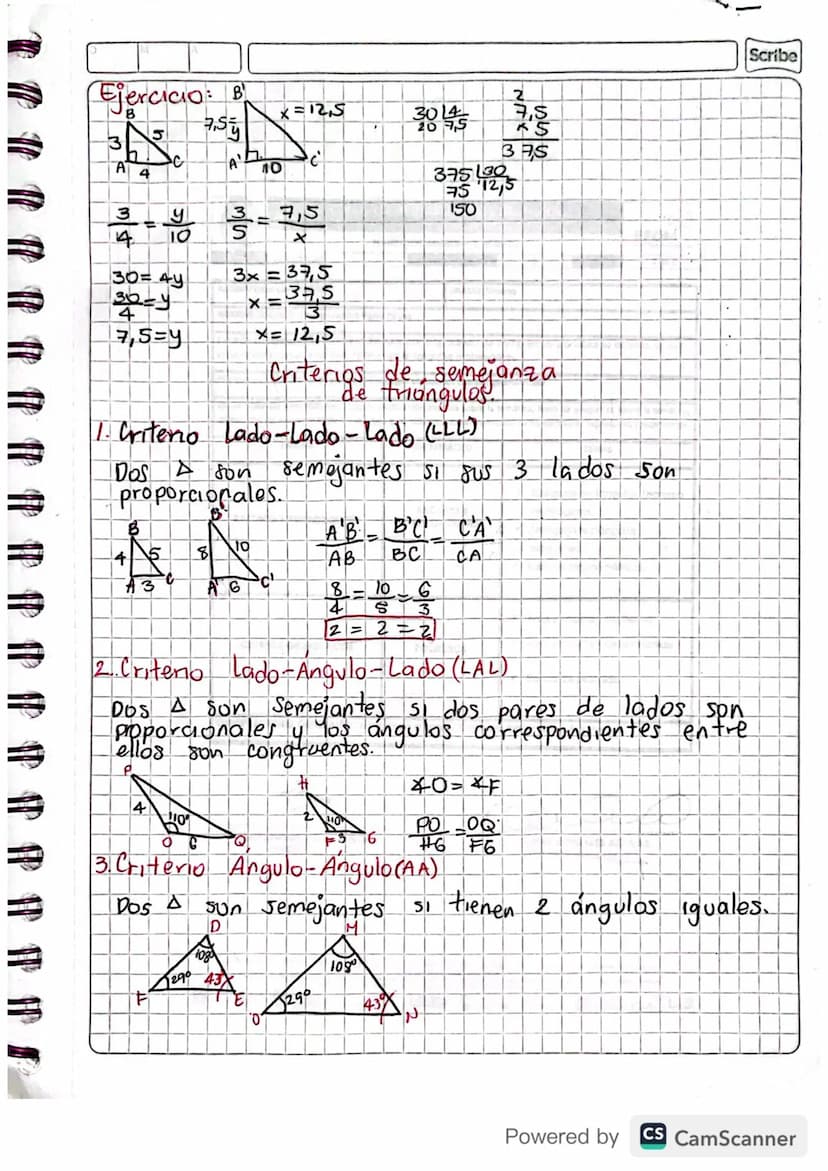 Scribe
Ejercicio:
B' x=12,5
B 7,5=y
3 5
A 4 C A' 10 C'
30 |4
20 7,5
2
7,5
x 5
3 7,5
375 |30
75 12,5
150
3/4 = y/10 3/5 = 7,5/x
30= 4y 3x = 37,5
30/4=y x = 37,5/3
7,5=y x= 12,5
Criterios de semejanza
de triángulos.
1. Criterio Lado-Lado-Lado (LLL)
Dos Δ son semejantes si sus 3 lados son
proporcionales.
B B'
4 5 8 10
A 3 C A' 6 C'
A'B'/AB = B'C'/BC = C'A'/CA
8/4 = 10/5 = 6/3
2 = 2 = 2
2. Criterio Lado-Ángulo-Lado (LAL)
Dos Δ son semejantes si dos pares de lados son
poporcionales y los ángulos correspondientes entre
ellos son congruentes.
P H
4 110° 2 110°
O 6 Q F 3 G
∡O= ∡F
PO/HG = OQ/FG
3. Criterio Ángulo-Ángulo(AA)
Dos Δ son semejantes si tienen 2 ángulos iguales.
D M
108° 108°
29° 43° 29° 43°
F E O N
Powered by CS CamScanner